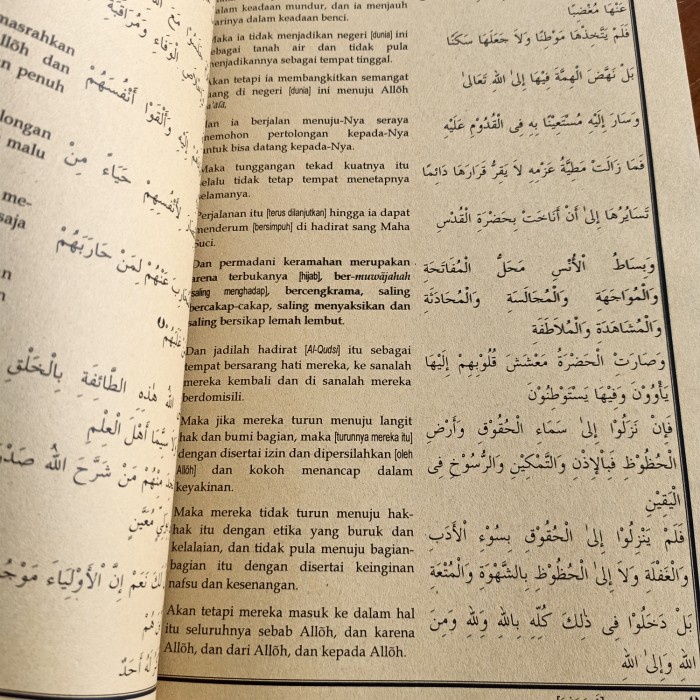 masrahkan
Allōh dan
n penuh
olongan
malu
me-
saja
an
n
أَنْفُسَهُمْ
وَأَلْقَوْا
حَيَاءً مِنْ
لِأَنْفُسِهِمْ
عَنْهُمْ لِمَنْ حَارَبَهُمْ
اللهُ هٰذِهِ الطَّائِفَةِ بِالْخَلْقِ
سِيَّمَا أَهْلَ الْعِلْمِ
مِنْهُمْ مَنْ شَرَّحَ اللهُ صَدْرَ
مُعَيَّنٍ
نَعَمْ إِنَّ الْأَوْلِيَاءَ مَوْجُ
لَهُ أَحَدٌ
alam keadaan mundur, dan ia menjauh
arinya dalam keadaan benci.
Maka ia tidak menjadikan negeri [dunia] ini
ebagai tanah air dan tidak pula
menjadikannya sebagai tempat tinggal.
Akan tetapi ia membangkitkan semangat
ang di negeri [dunia] ini menuju Allōh
an ia berjalan menuju-Nya seraya
emohon pertolongan kepada-Nya
ntuk bisa datang kepada-Nya.
Maka tunggangan tekad kuatnya itu
elalu tidak tetap tempat menetapnya
elamanya.
Perjalanan itu [terus dilanjutkan] hingga ia dapat
menderum [bersimpuh] di hadirat sang Maha
Suci.
Dan permadani keramahan merupakan
arena terbukanya [hijab], ber-muwājahah
[saling menghadap], bercengkrama, saling
bercakap-cakap, saling menyaksikan dan
saling bersikap lemah lembut.
Dan jadilah hadirat [Al-Qudsi] itu sebagai
tempat bersarang hati mereka, ke sanalah
mereka kembali dan di sanalah mereka
berdomisili.
Maka jika mereka turun menuju langit
hak dan bumi bagian, maka [turunnya mereka itu]
dengan disertai izin dan dipersilahkan [oleh
Allōh] dan kokoh menancap dalam
keyakinan.
Maka mereka tidak turun menuju hak-
hak itu dengan etika yang buruk dan
kelalaian, dan tidak pula menuju bagian-
bagian itu dengan disertai keinginan
nafsu dan kesenangan.
Akan tetapi mereka masuk ke dalam hal
itu seluruhnya sebab Allōh, dan karena
Allōh, dan dari Allōh, dan kepada Allōh.
عَنْهَا مُغْضَبًا
فَلَمْ يَتَّخِذْهَا مَوْطِنًا وَلَا جَعَلَهَا سَكَنًا
بَلْ نَهَّضَ الْهِمَّةَ فِيْهَا إِلَى اللهِ تَعَالَى
وَسَارَ إِلَيْهِ مُسْتَعِيْنًا بِهِ فِي الْقُدُوْمِ عَلَيْهِ
فَمَا زَالَتْ مَطِيَّةُ عَزْمِهِ لَا يَقِرُّ قَرَارُهَا دَائِمًا
تَسَايُرُهَا إِلَى أَنْ أَنَاخَتْ بِحَضْرَةِ الْقُدْسِ
وَبِسَاطُ الْأُنْسِ مَحَلُّ الْمُفَاتَحَةِ
وَالْمُوَاجَهَةِ وَالْمُجَالَسَةِ وَالْمُحَادَثَةِ
وَالْمُشَاهَدَةِ وَالْمُلَاطَفَةِ
وَصَارَتْ الْحَضْرَةُ مَعْشَشَ قُلُوْبِهِمْ إِلَيْهَا
يَأْوُوْنَ وَفِيْهَا يَسْتَوْطِنُوْنَ
فَإِنْ نَزَلُوْا إِلَى سَمَاءِ الْحُقُوْقِ وَأَرْضِ
الْحُظُوْظِ فَبِالْإِذْنِ وَالتَّمْكِيْنِ وَالرُّسُوْخِ فِي
الْيَقِيْنِ
فَلَمْ يَنْزِلُوْا إِلَى الْحُقُوْقِ بِسُوْءِ الْأَدَبِ
وَالْغَفْلَةِ وَلَا إِلَى الْحُظُوْظِ بِالشَّهْوَةِ وَالْمُتْعَةِ
بَلْ دَخَلُوْا فِي ذٰلِكَ كُلِّهِ بِاللهِ وَلِلهِ وَمِنَ
اللهِ وَإِلَى اللهِ